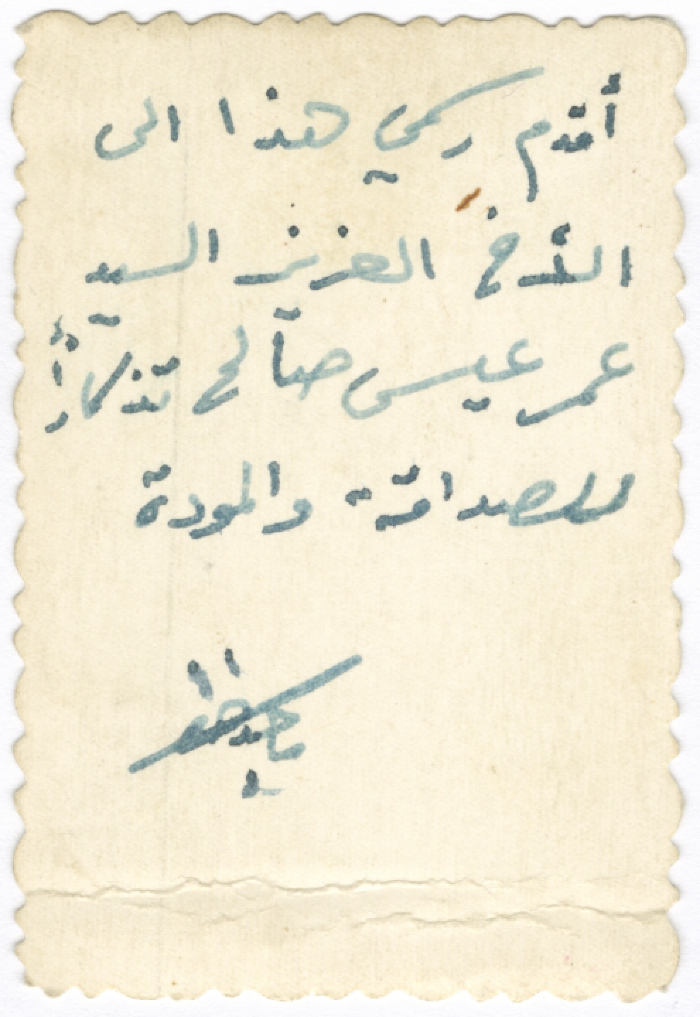 أقدم رسمي هذا الى
الأخ العزيز السيد
عمر عيسى صالح تذكاراً
للصداقة والمودة